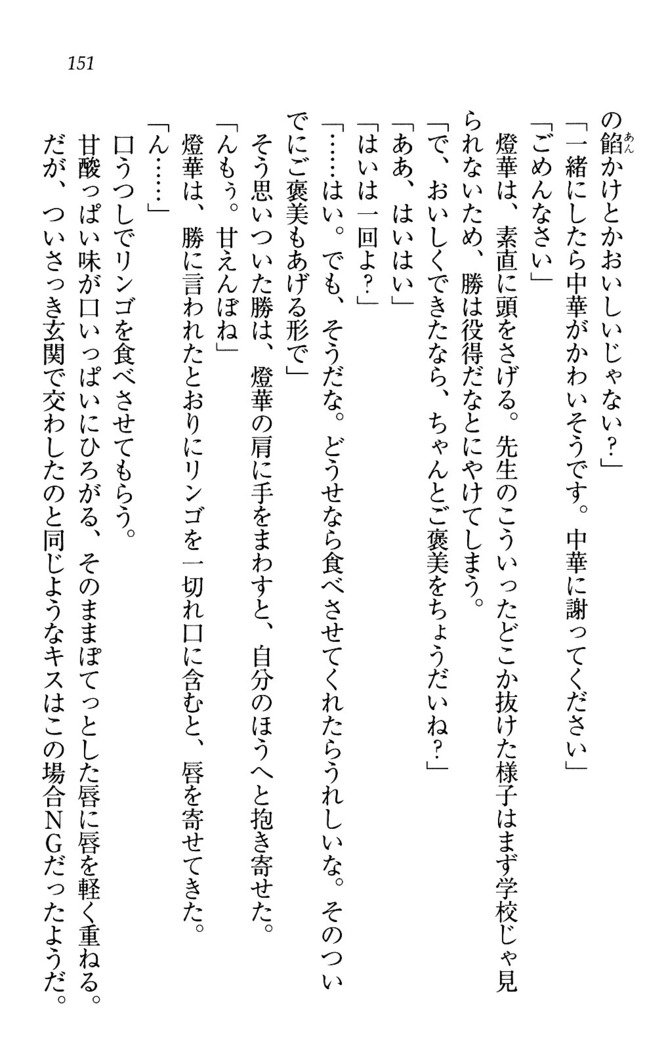 151
の餡かけとかおいしいじゃない？」
「一緒にしたら中華がかわいそうです。中華に謝ってください」
「ごめんなさい」
燈華は、素直に頭をさげる。先生のこういったどこか抜けた様子はまず学校じゃ見
られないため、勝は役得だなとにやけてしまう。
「で、おいしくできたなら、ちゃんとご褒美をちょうだいね？」
「ああ、はいはい」
「はいは一回よ？」
「……はい。でも、そうだな。どうせなら食べさせてくれたらうれしいな。そのつい
でにご褒美もあげる形で」
そう思いついた勝は、燈華の肩に手をまわすと、自分のほうへと抱き寄せた。
「んもぅ。甘えんぼね」
燈華は、勝に言われたとおりにリンゴを一切れ口に含むと、唇を寄せてきた。
「ん……」
口うつしでリンゴを食べさせてもらう。
甘酸っぱい味が口いっぱいにひろがる、そのままぽてっとした唇に唇を軽く重ねる。
だが、ついさっき玄関で交わしたのと同じようなキスはこの場合ＮＧだったようだ。